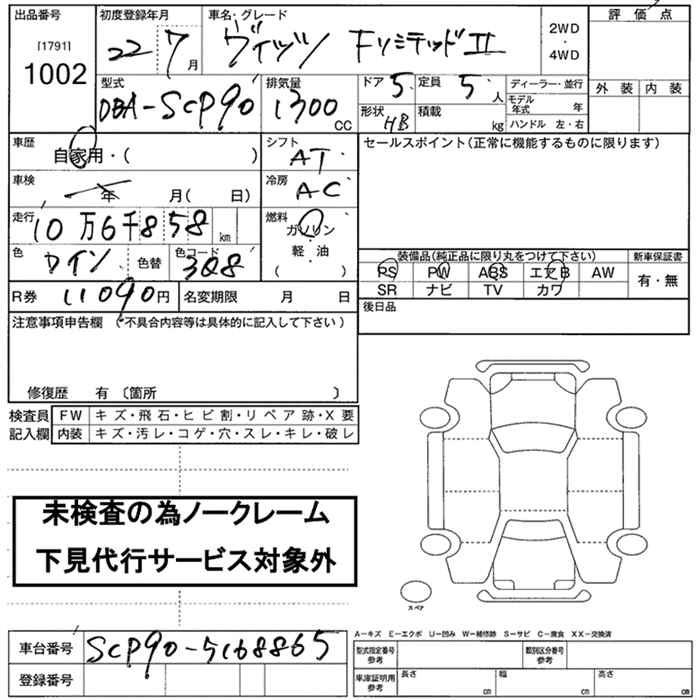 出品番号 初度登録年月 車名・グレード 評価点
[1791] 1002 22 7月 ヴィッツ FリミテッドII 2WD・4WD
型式 排気量 ドア 定員 ディーラー・並行 外装 内装
DBA-SCP90 1300CC 5 5人 モデル年式 年
形状 HB 積載 kg ハンドル 左・右
車歴 自家用・( ) シフト AT セールスポイント(正常に機能するものに限ります)
車検 年 月( 日) 冷房 AC
走行 10万6千858km 燃料 ガソリン・軽・油 ( )
色 ワイン 色替 色コード 3Q8 装備品(純正品に限り丸をつけて下さい) 新車保証書
PS PW ABS エアB AW 有・無
SR ナビ TV カワ
R券 11090円 名変期限 月 日 後日品
注意事項申告欄 (*不具合内容等は具体的に記入して下さい)
修復歴 有 〔箇所 〕
検査員記入欄 FW キズ・飛石・ヒビ割・リペア跡・X要
内装 キズ・汚レ・コゲ・穴・スレ・キレ・破レ
未検査の為ノークレーム
下見代行サービス対象外
スペア
A-キズ E-エクボ U-凹み W-補修跡 S-サビ C-腐食 XX-交換済
車台番号 SCP90-5168865 型式指定番号 参考 類別区分番号 参考
登録番号 車庫証明用 参考 長さ cm 幅 cm 高さ cm